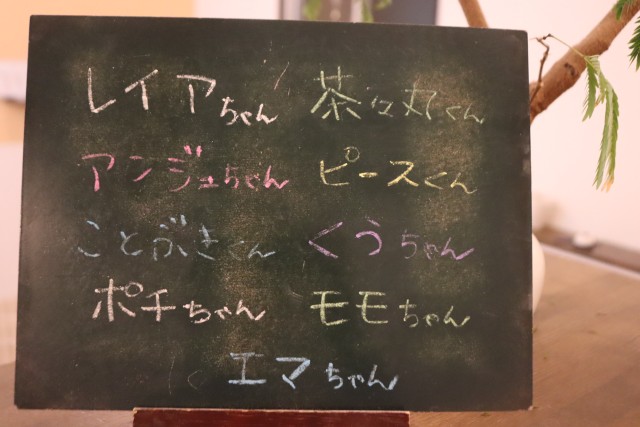 レイアちゃん 茶々丸くん
アンジュちゃん ピースくん
ことぶきくん くうちゃん
ポチちゃん モモちゃん
エマちゃん